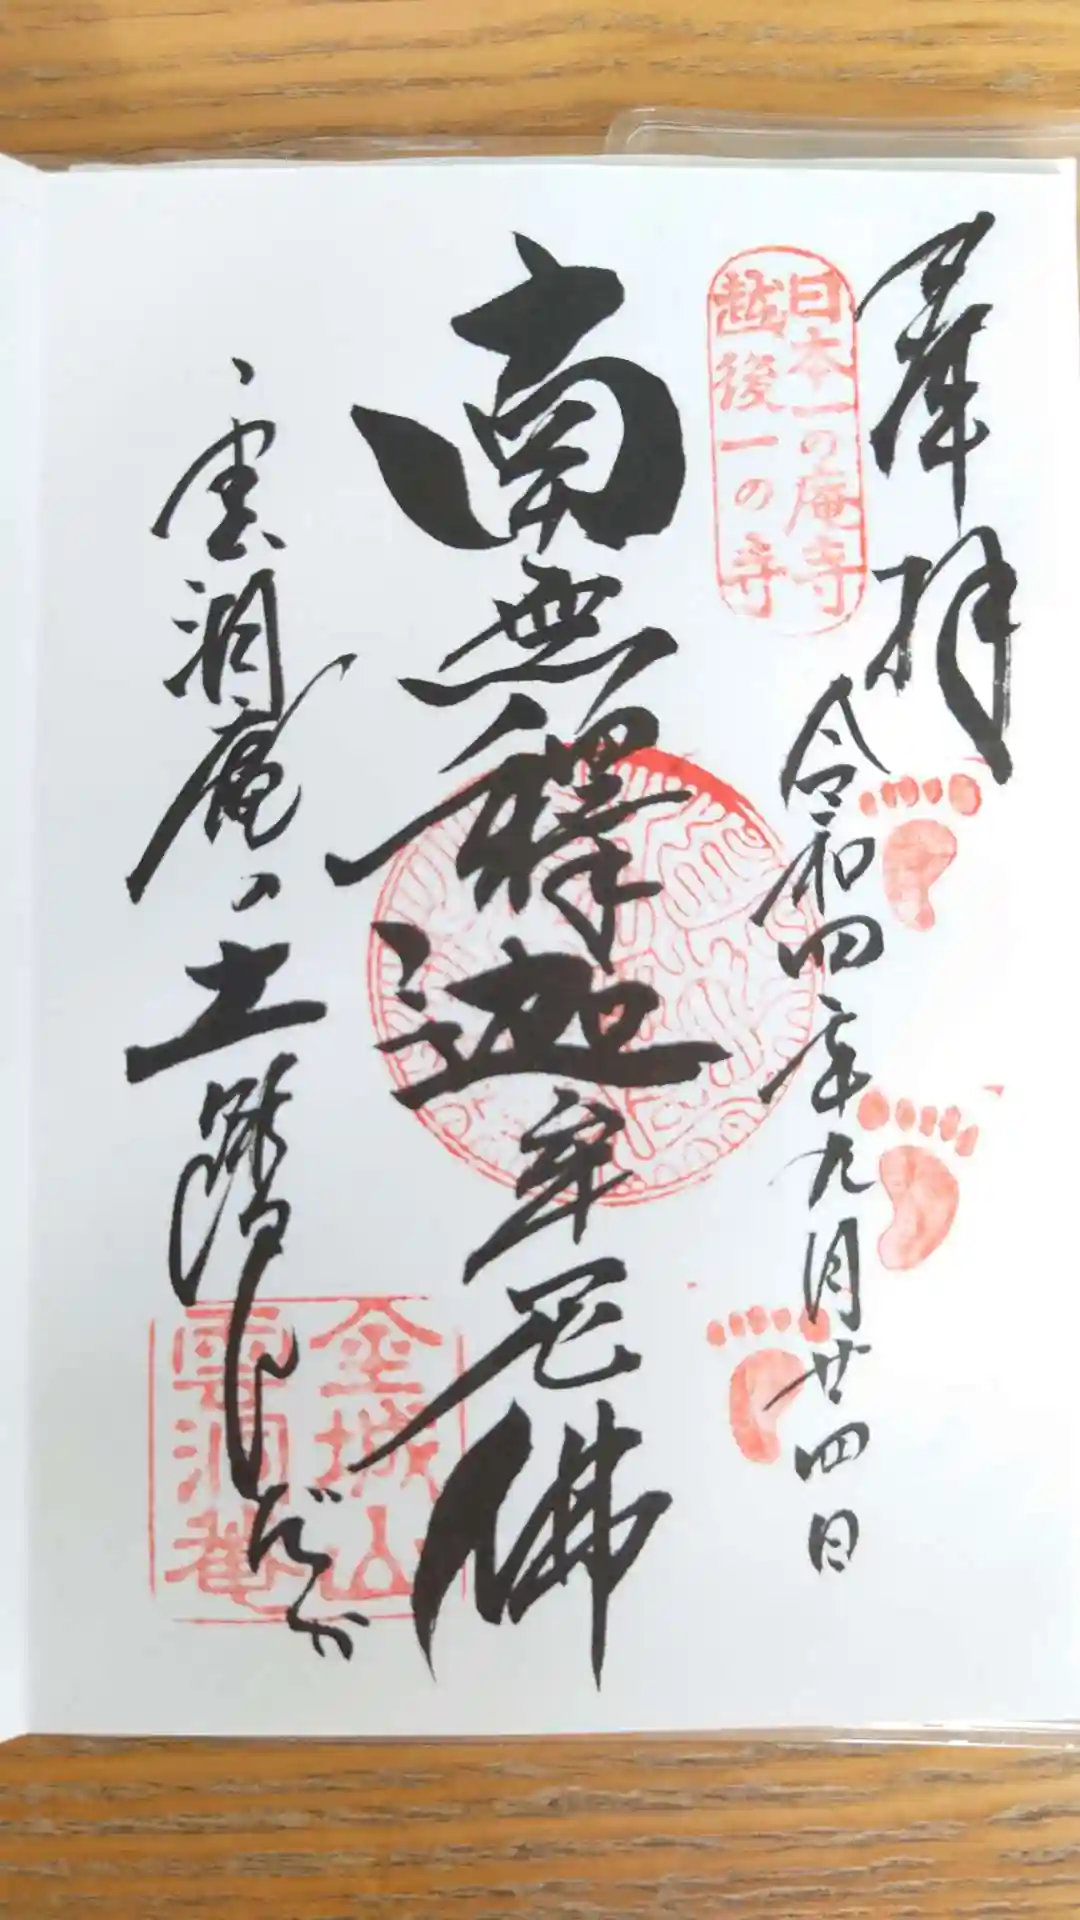 奉拝
日本一の庵寺
越後一の寺
令和四年九月廿四日
南無釋迦牟尼佛
雲洞庵の土踏しだか
金城山
雲洞庵